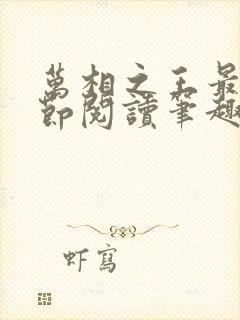 萬相之王最
節閱讀筆趣
虾寫